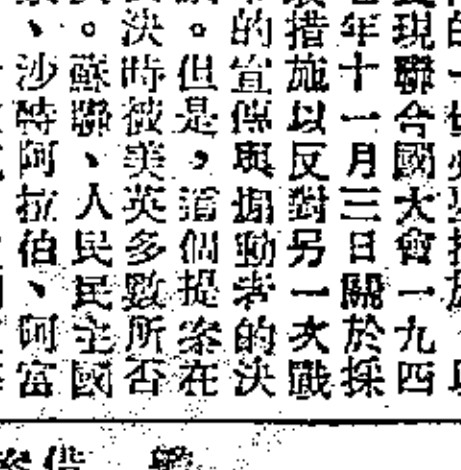 現聯合國大會一九四
年十一月三日關於採
措施以反對另一次戰
的宣傳與煽動者的決
。但是，這個提案在
決時被美英多數所否
。蘇聯、人民民主國
、沙特阿拉伯、阿富